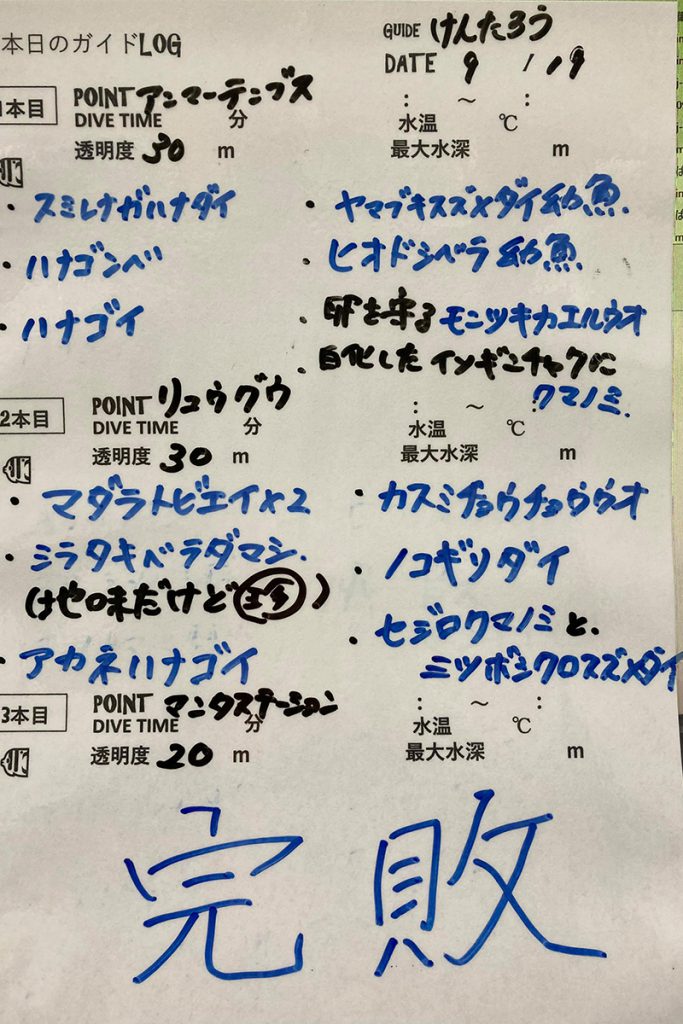 本日のガイドLOG
GUIDE けんたろう
DATE 9 / 19
1本目
POINT アンマーテンプス
DIVE TIME 分
: ～ :
水温 ℃
透明度 30 m
最大水深 m
・スミレナガハナダイ
・ハナゴンベ
・ハナゴイ
・ヤマブキスズメダイ幼魚.
・ヒオドシベラ幼魚
・卵を守るモンツキカエルウオ
・白化したイソギンチャクに
クマノミ.
2本目
POINT リュウグウ
DIVE TIME 分
: ～ :
水温 ℃
透明度 30 m
最大水深 m
・マダラトビエイ×2
・シラタキベラダマシ.
(地味だけど珍)
・アカネハナゴイ
・カスミチョウチョウウオ
・ノコギリダイ
・セジロクマノミと、
ミツボシクロスズメダイ
3本目
POINT マンタステーション
DIVE TIME 分
: ～ :
水温 ℃
透明度 20 m
最大水深 m
完敗